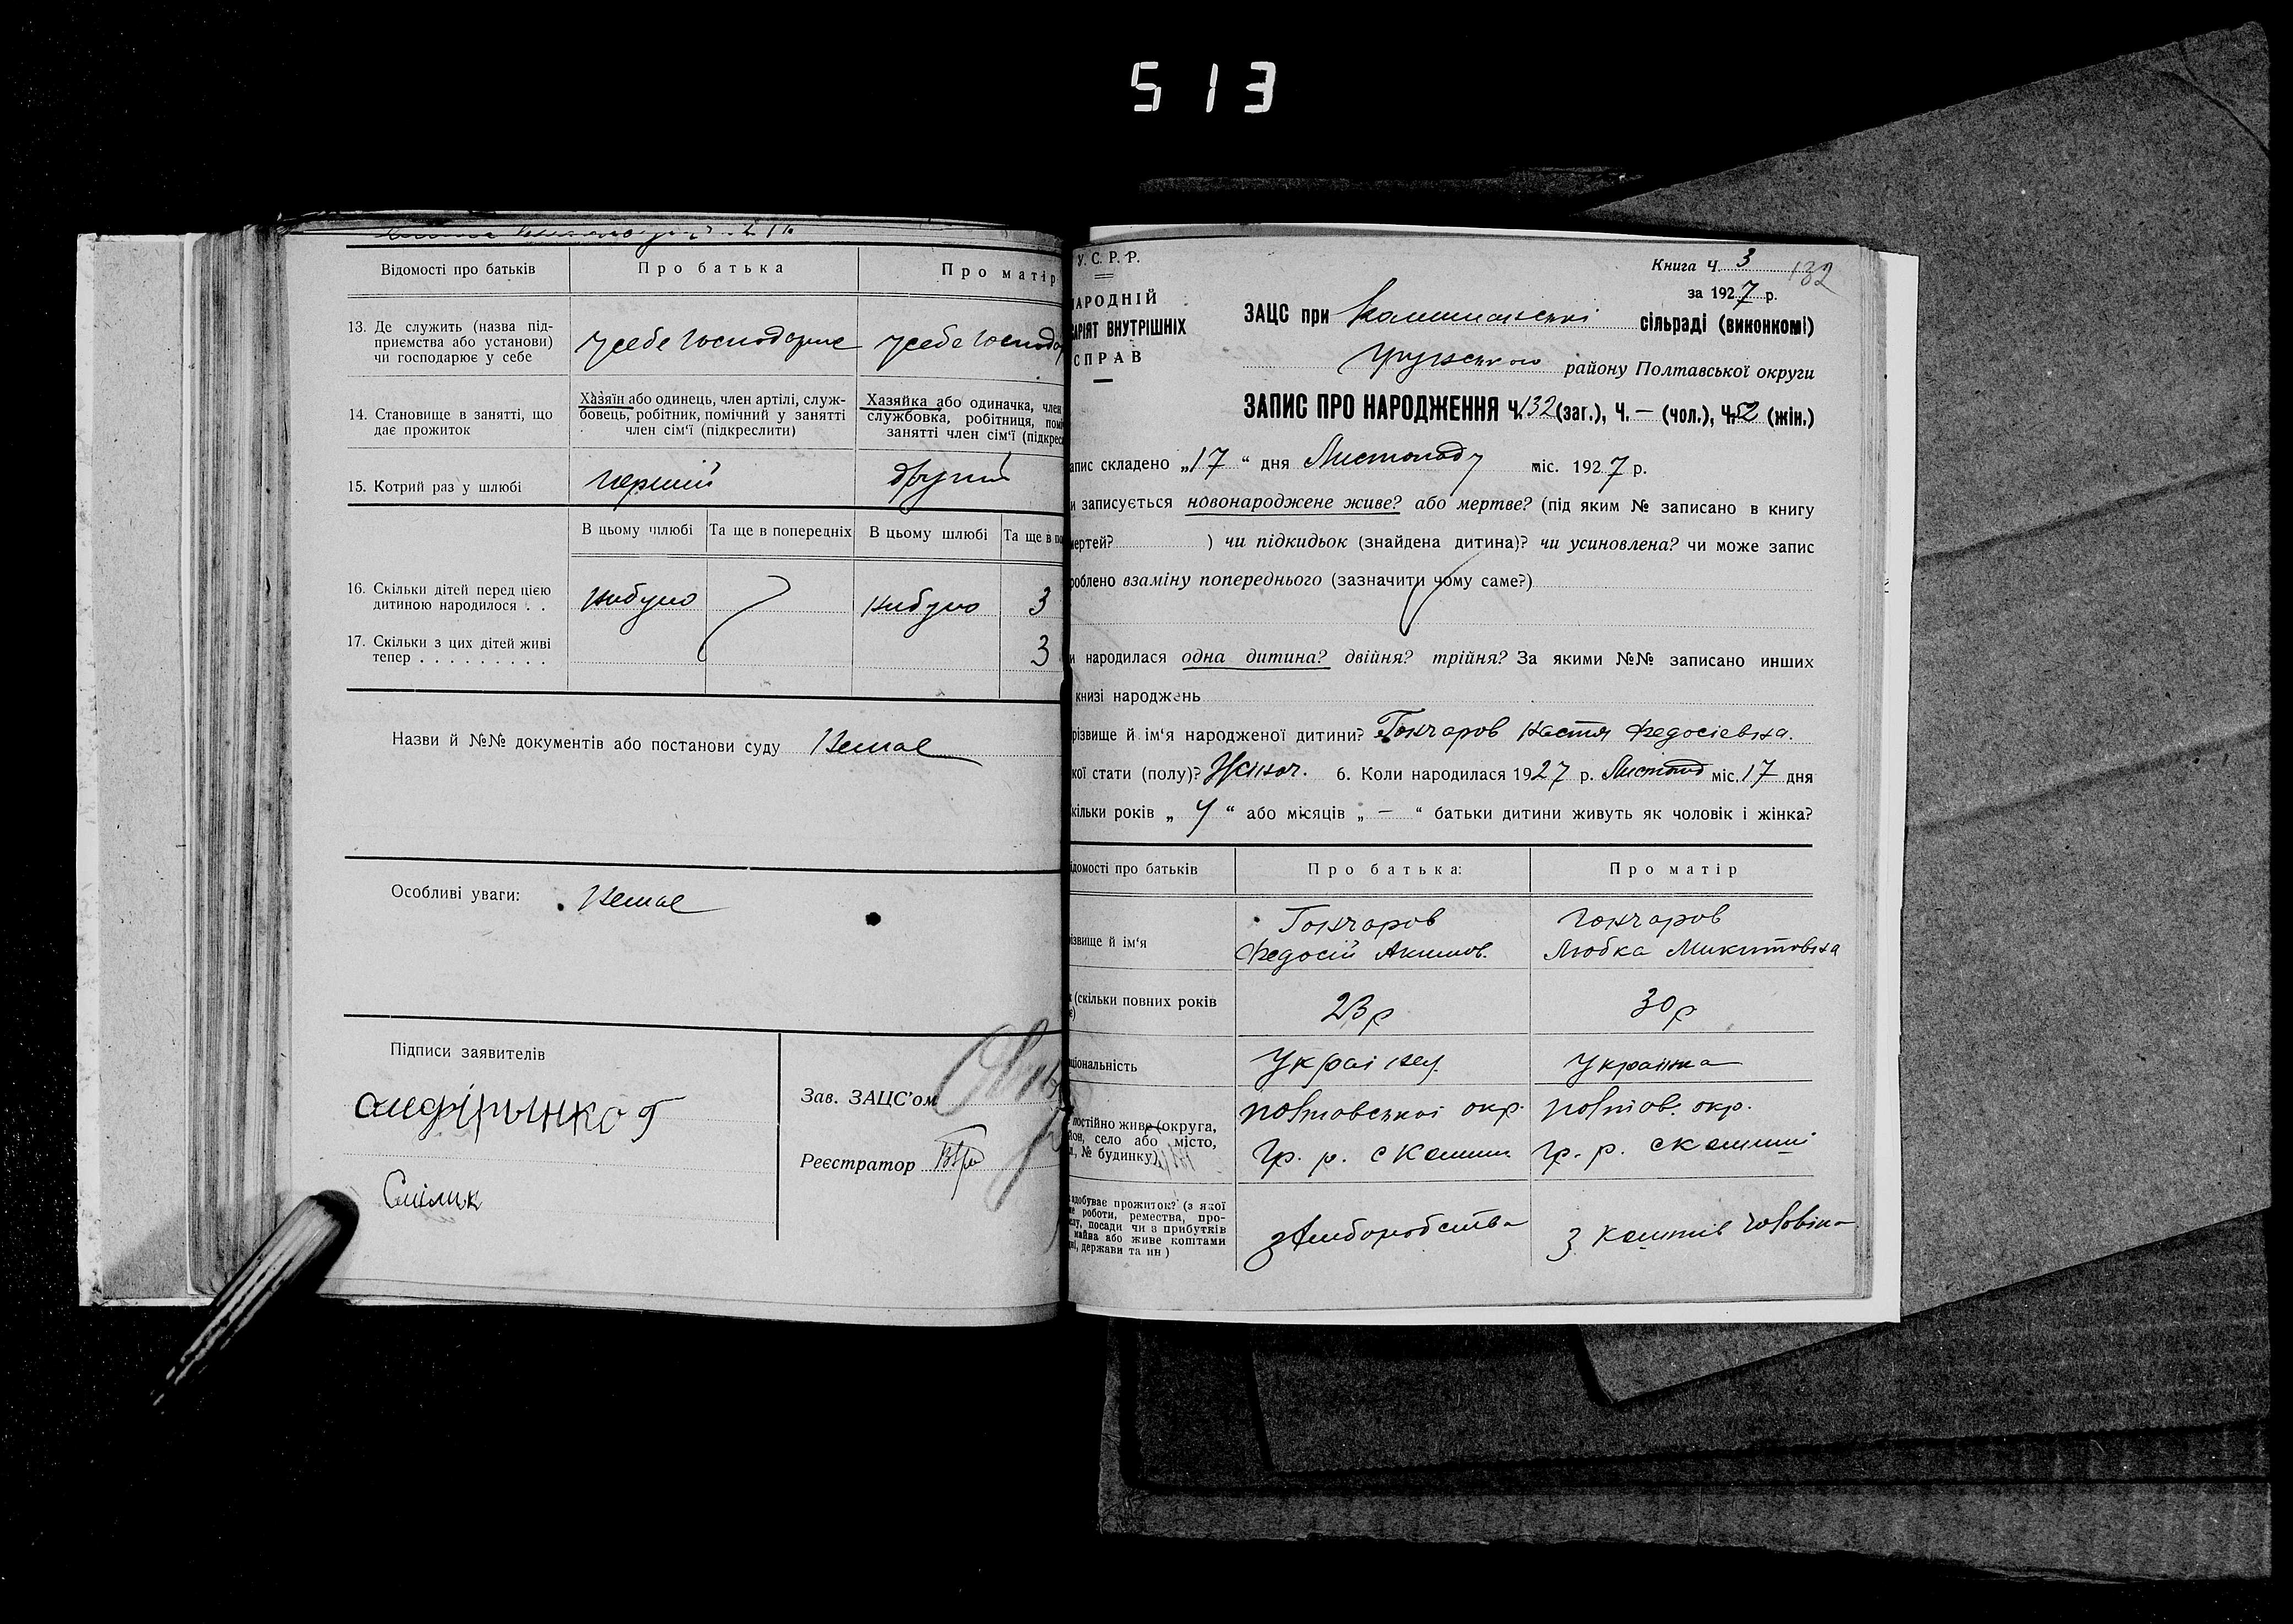 513
Відомості про батьків
Про батька
Про матір
13. Де служить (назва під-
приємства або установи)
чи господарює у себе
у себе господарює
у себе господар
14. Становище в занятті, що
дає прожиток
Хазяїн або одинець, член артілі, служ-
бовець, робітник, помічний у занятті
член сім'ї (підкреслити)
Хазяйка або одиначка, член
службовка, робітниця, помі
занятті член сім'ї (підкрес
15. Котрий раз у шлюбі
перший
другий
В цьому шлюбі
Та ще в попередніх
В цьому шлюбі
Та ще в по
16. Скільки дітей перед цією
дитиною народилося . .
небуло
небуло
3
17. Скільки з цих дітей живі
тепер . . . . . . . . .
3
Назви й №№ документів або постанови суду Немає
Особливі уваги: Немає
Підписи заявителів
Зав. ЗАЦС'ом
Реєстратор
У. С. Р. Р.
АРОДНІЙ
АРІЯТ ВНУТРІШНІХ
СПРАВ
Книга Ч. 3
132
за 1927 р.
ЗАЦС при сільраді (виконкомі)
району Полтавської округи
ЗАПИС ПРО НАРОДЖЕННЯ Ч. 132 (заг.), Ч. — (чол.), Ч. 52 (жін.)
апис складено „17“ дня Листопаду міс. 1927 р.
и записується новонароджене живе? або мертве? (під яким № записано в книгу
мертей? ) чи підкидьок (знайдена дитина)? чи усиновлена? чи може запис
роблено взаміну попереднього (зазначити чому саме?)
и народилася одна дитина? двійня? трійня? За якими №№ записано инших
книзі народжень
різвище й ім'я народженої дитини? Гончаров Настя Федосіевна.
кої стати (полу)? Жіноч. 6. Коли народилася 1927 р. Листопад міс. 17 дня
кільки років „ 4 “ або місяців „ — “ батьки дитини живуть як чоловік і жінка?
ідомості про батьків
Про батька:
Про матір
ізвище й ім'я
Гончаров
Федосій Акимов.
Гончаров
Любка Микитовна
(скільки повних років
є)
23 р
30 р
ціональність
Украінец
Украінка
постійно живе (округа,
йон, село або місто,
, № будинку)
полтавської окр.
Гр. р. с Кашин
полтав. окр.
Гр. р. с Кашині
адобуває прожиток? (з якої
роботи, ремества, про-
лу, посади чи з прибутків
майна або живе коштами
ні, держави та ин)
з хлиборобства
з коштів чоловіка